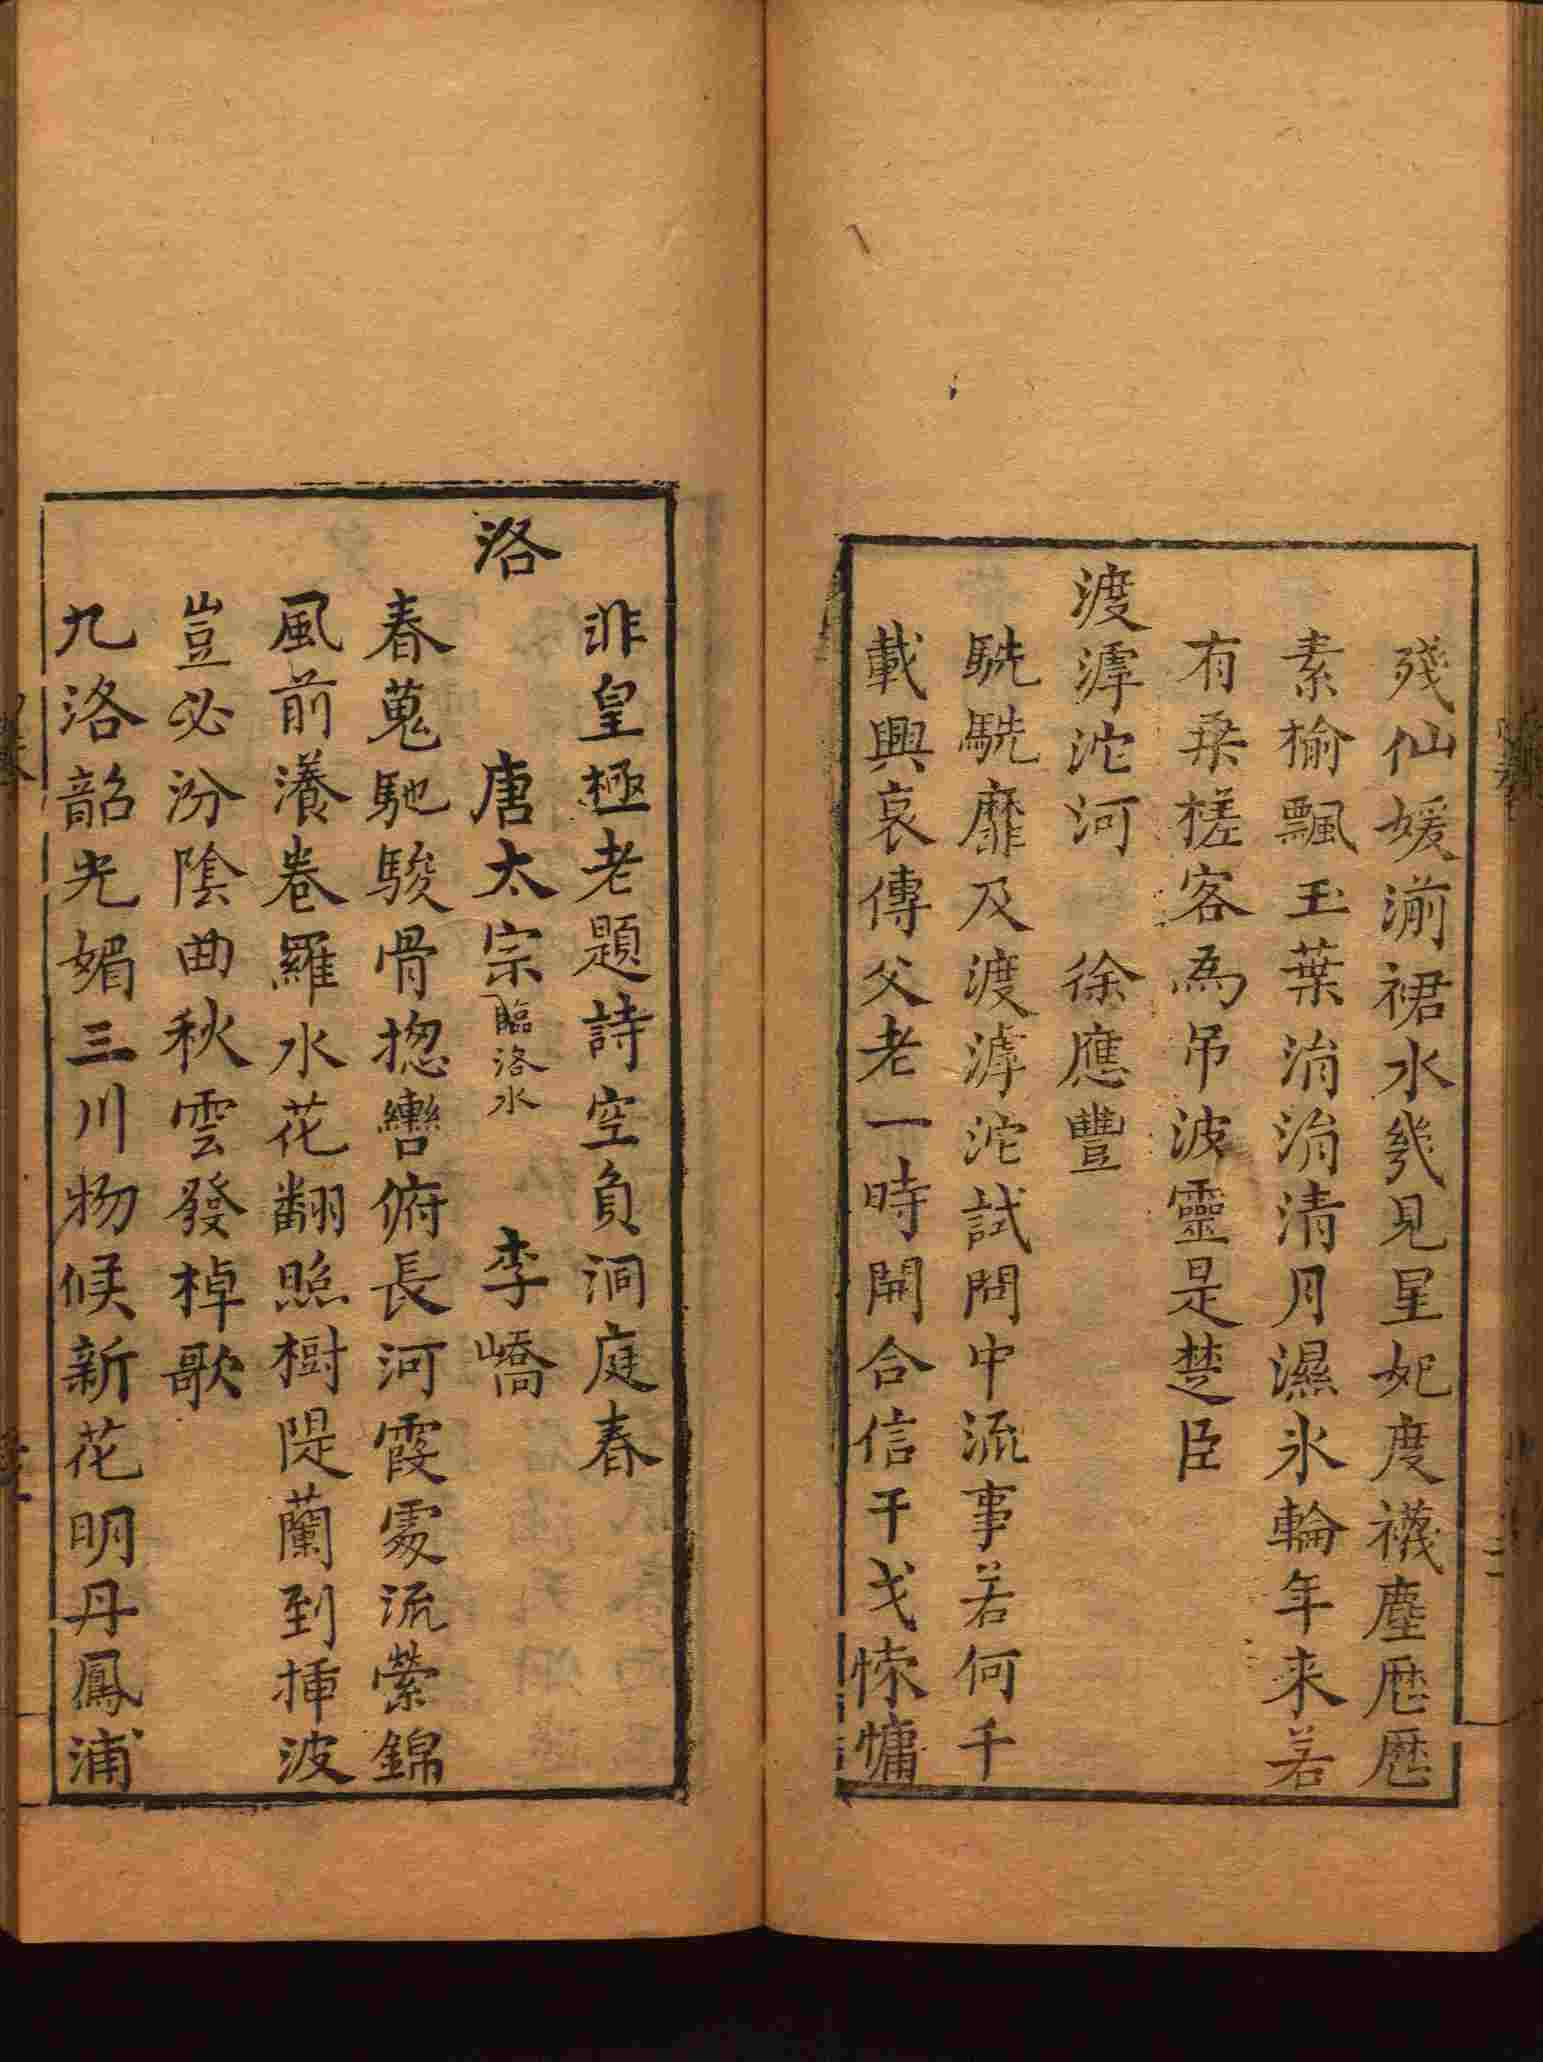 殘仙媛湔裙水幾見星妃度襪塵歴歴
素榆飄玉葉涓涓清月濕氷輪年来若
有乗槎客為吊波靈是楚臣
渡滹沱河 徐應豐
駪駪靡及渡滹沱試問中流事若何千
載興哀傳父老一時開合信干戈悚慵
非皇極老題詩空負洞庭春
洛 唐太宗臨洛水 李嶠
春蒐馳駿骨揔轡俯長河霞處流縈錦
風前瀁卷羅水花翻照樹隄蘭到揷波
豈必汾陰曲秋雲發棹歌
九洛韶光媚三川物候新花明丹鳳浦